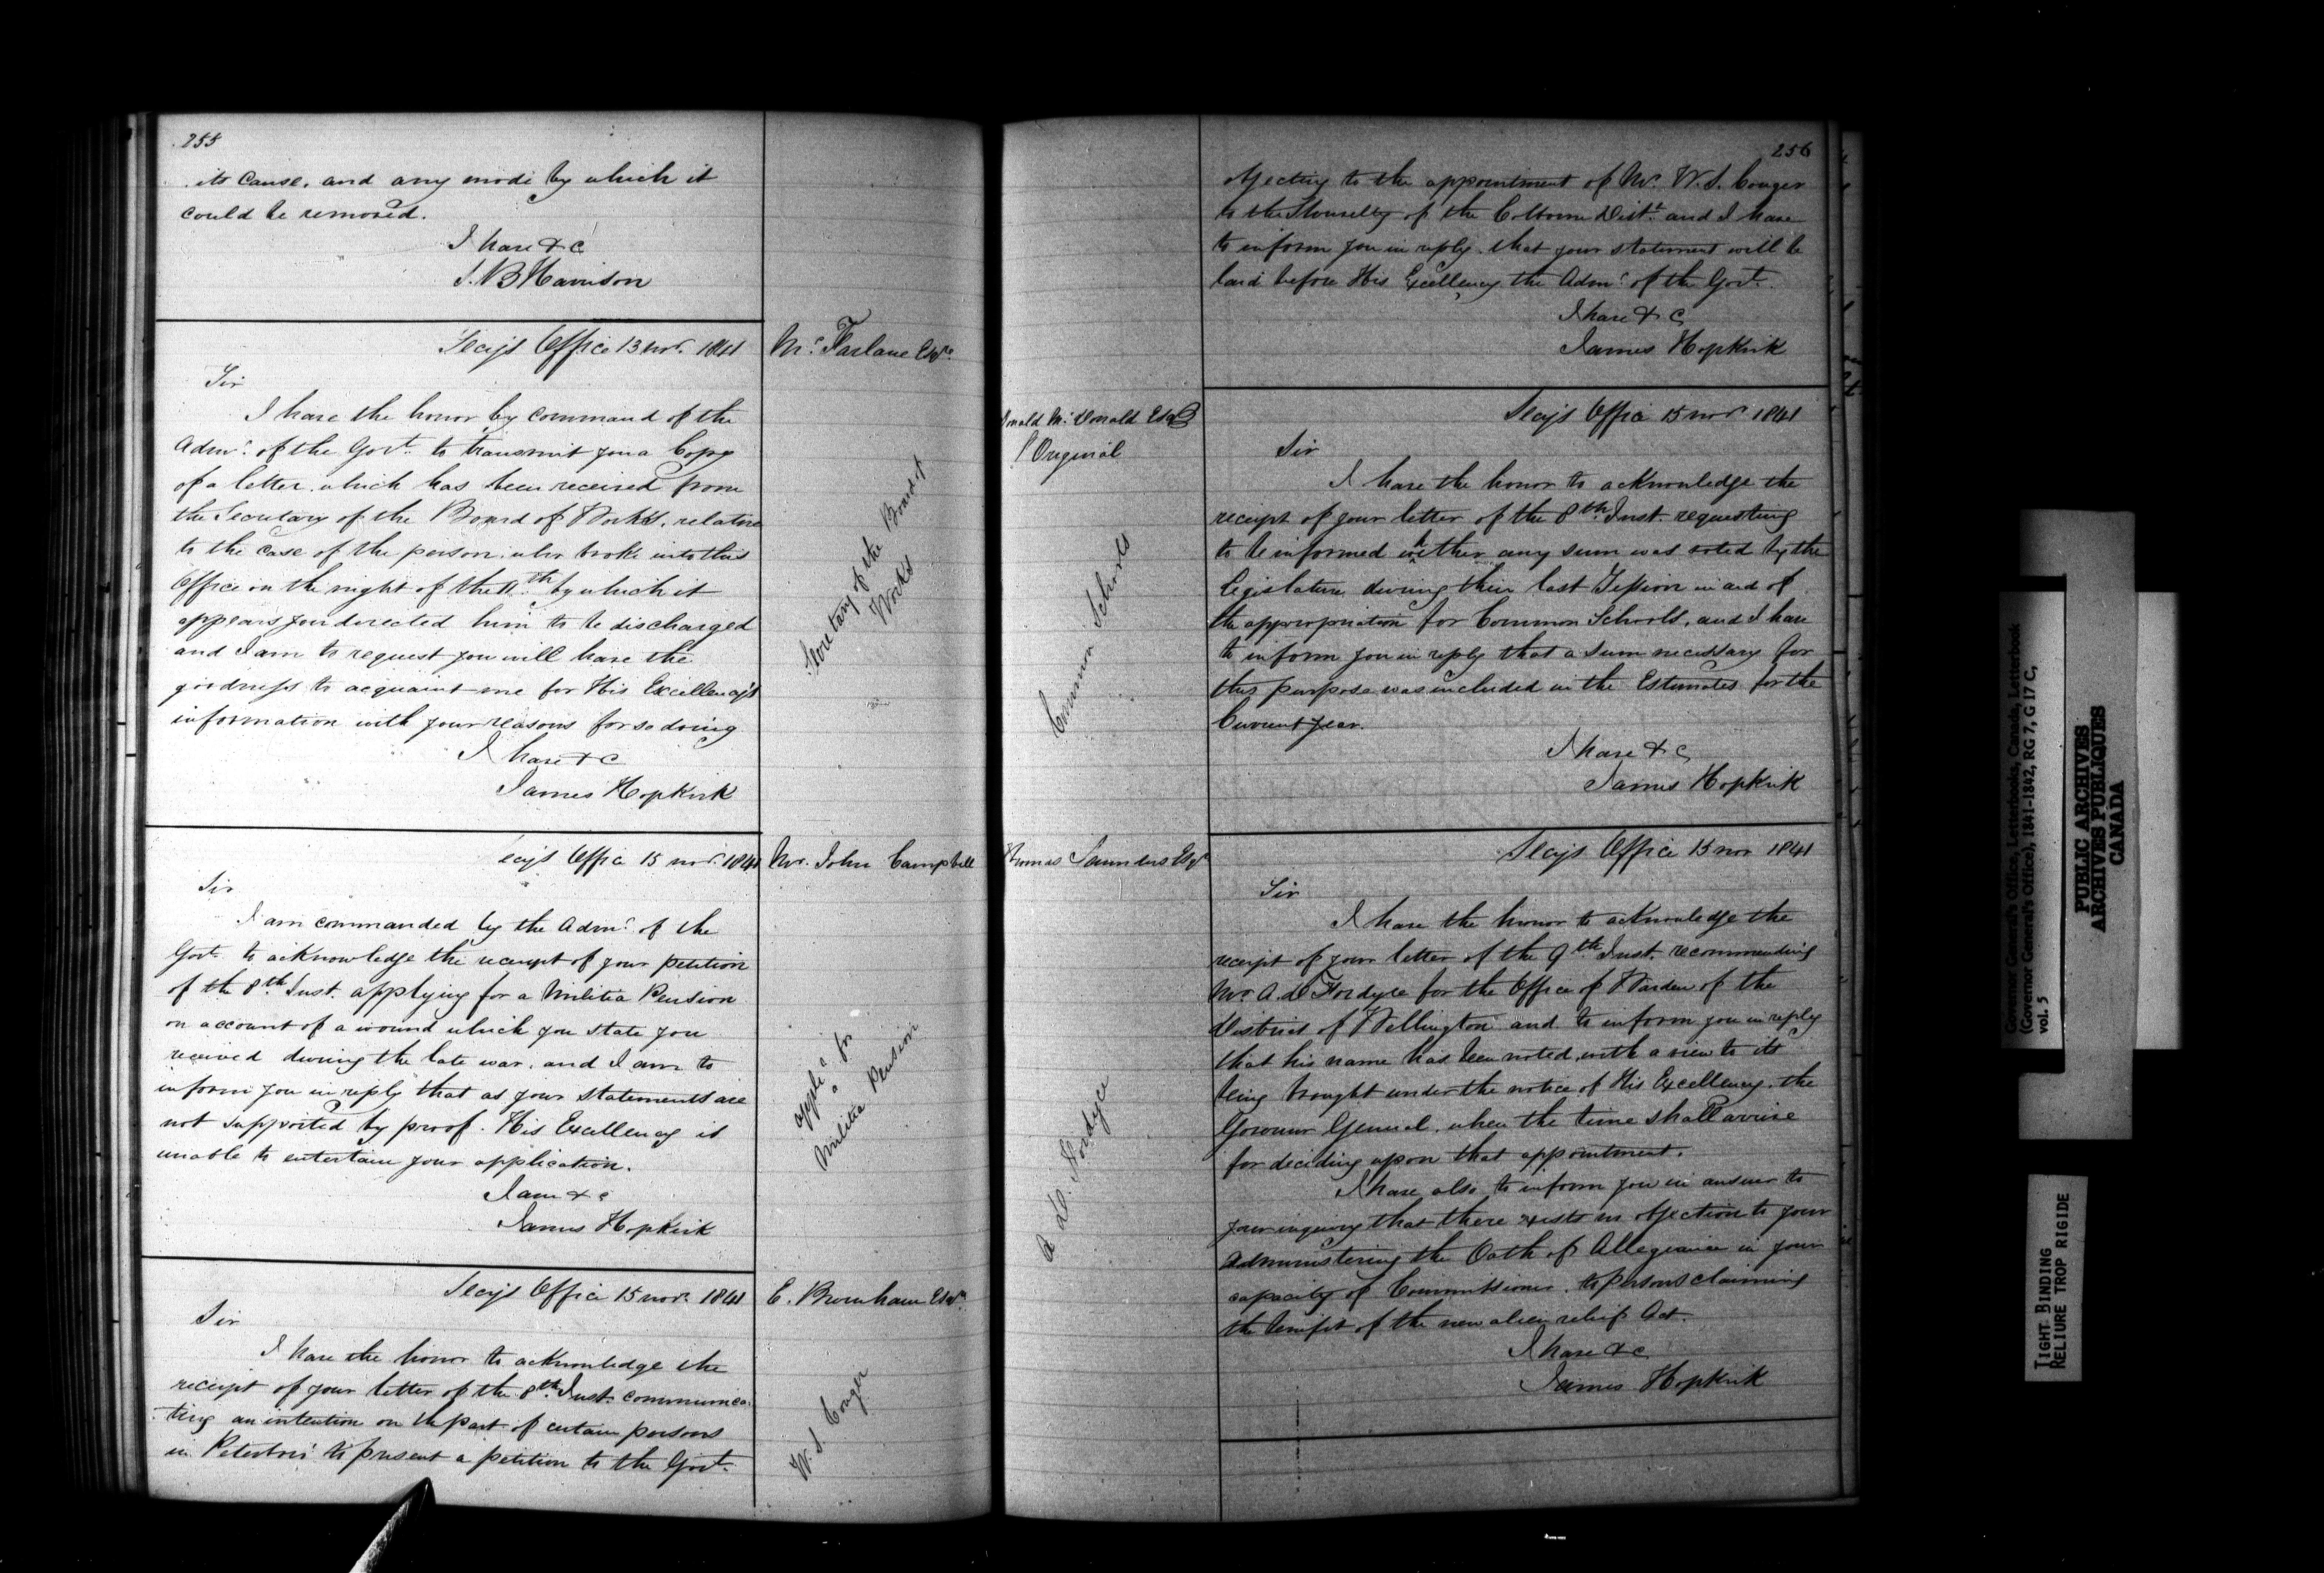 255
its Cause, and any mode by which it
could be removed.
I have &c
S.B Harrison
Secy's Office 13 Novr. 1841
Mc. Farlane Esqre.
Sir
I have the honor by command of the
Admr. of the Govt. to transmit you a Copy
of a letter which has been received from
the Secretary of the Board of Works, relative
to the case of the person who broke into this
Office on the night of the 11th. by which it
appears you directed him to be discharged
and I am to request you will have the
goodness to acquaint me for His Excellency's
information with your reasons for so doing
I have &c
James Hopkirk
Secretary of the Board of
Works
ecy's Office 15 Novr. 1841
Mr. John Campbell
Sir
I am commanded by the Admr. of the
Govt. to acknowledge the receipt of your petition
of the 8th Inst. applying for a Militia Pension
on account of a wound which you state you
received during the late war, and I am to
inform you in reply that as your statements are
not supported by proof. His Excellency is
unable to entertain your application.
I am &c
James Hopkirk
applic. for
a
Militia Pension
Secy's Office 15 Novr. 1841
E. Burnham Esqr.
Sir
I have the honor to acknowledge the
receipt of your letter of the 8th. Inst. communica-
ting an intention on the part of certain persons
in Peterboro' to present a petition to the Govt.
W. S. Conger
256
objecting to the appointment of Mr. W. S. Conger
to the Shrievalty of the Colborne Distt. and I have
to inform you in reply that your statement will be
laid before His Excellency the Admr. of the Govt.
I have & C
James Hopkirk
Secy's Office 15 Novr. 1841
onald Mc. Donald Esqr
Original
Sir
I have the honor to acknowledge the
receipt of your letter of the 8th Inst. requesting
to be informed whether any sum was voted by the
legislature during their last Session in aid of
the appropriation for Common Schools, and I have
to inform you in reply that a sum necessary for
this purpose was included in the Estimates for the
Current year.
I have & C
James Hopkirk
Common Schools
Secy's Office 15 Nov 1841
Thomas Saunders Esqr
Sir
I have the honor to acknowledge the
receipt of your letter of the 9th Inst. recommending
Mr. A. D Fordyce for the Office of Warden of the
District of Wellington and to inform you in reply
that his name has been noted with a view to its
being brought under the notice of His Excellency the
Governor General, when the time shall arrive
for deciding upon that appointment.
I have also to inform you in answer to
your inquiry that there exists no objection to your
administering the Oath of Allegiance in your
capacity of Commissioner, to persons claiming
the benefit of the new alien relief Act.
I have &c
James Hopkirk
A D. Fordyce
Governor General's Office, Letterbooks, Canada, Letterbook
(Governor General's Office), 1841-1842, RG 7, G 17 C,
vol. 5
PUBLIC ARCHIVES
ARCHIVES PUBLIQUES
CANADA
TIGHT BINDING
RELIURE TROP RIGIDE